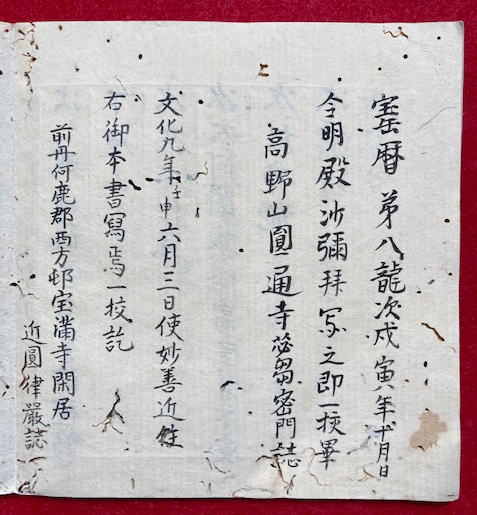 宝暦第八龍次戊寅年十月日
令明殿沙彌拜寫之即一挍畢
高野山圓通寺苾蒭密門誌
文化九年壬申六月三日使妙善近住
右御本書寫焉一挍訖
前丹何鹿郡西方邨宝満寺閑居
近圓律嚴誌